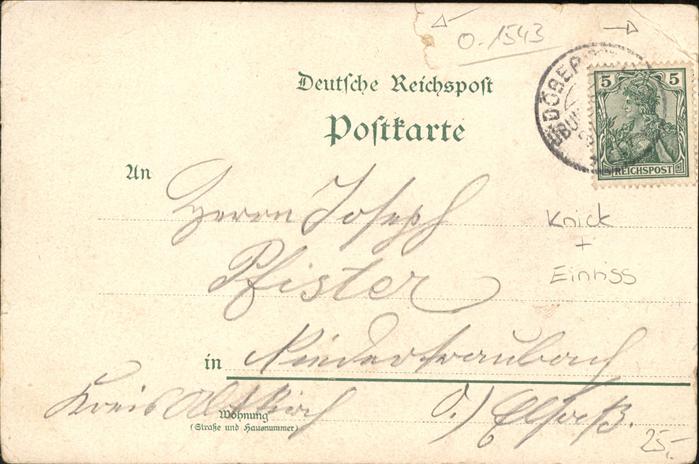 0.1543
Deutsche Reichspost
Postkarte
DÖBER
5 5
REICHSPOST
An Herrn Joseph
Knick
+
Einriss
Pfister
in Niedertraubach
Kreis Altkirch O.) Elsaß.
Wohnung
(Straße und Hausnummer)
25.-